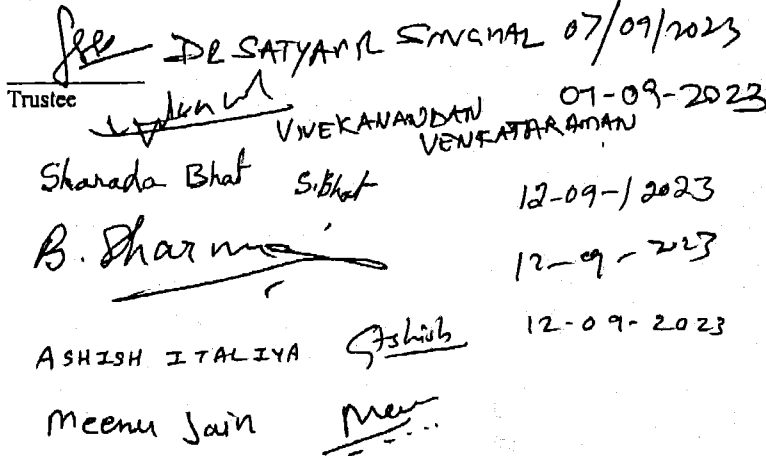 DR SATYAVIR SINGHAL 07/09/2023
Trustee
VIVEKANANDAN 07-09-2023
VENKATARAMAN
Sharada Bhat S.Bhat 12-09-2023
B. Sharma 12-09-2023
ASHISH ITALIYA Ashish 12-09-2023
Meenu Jain